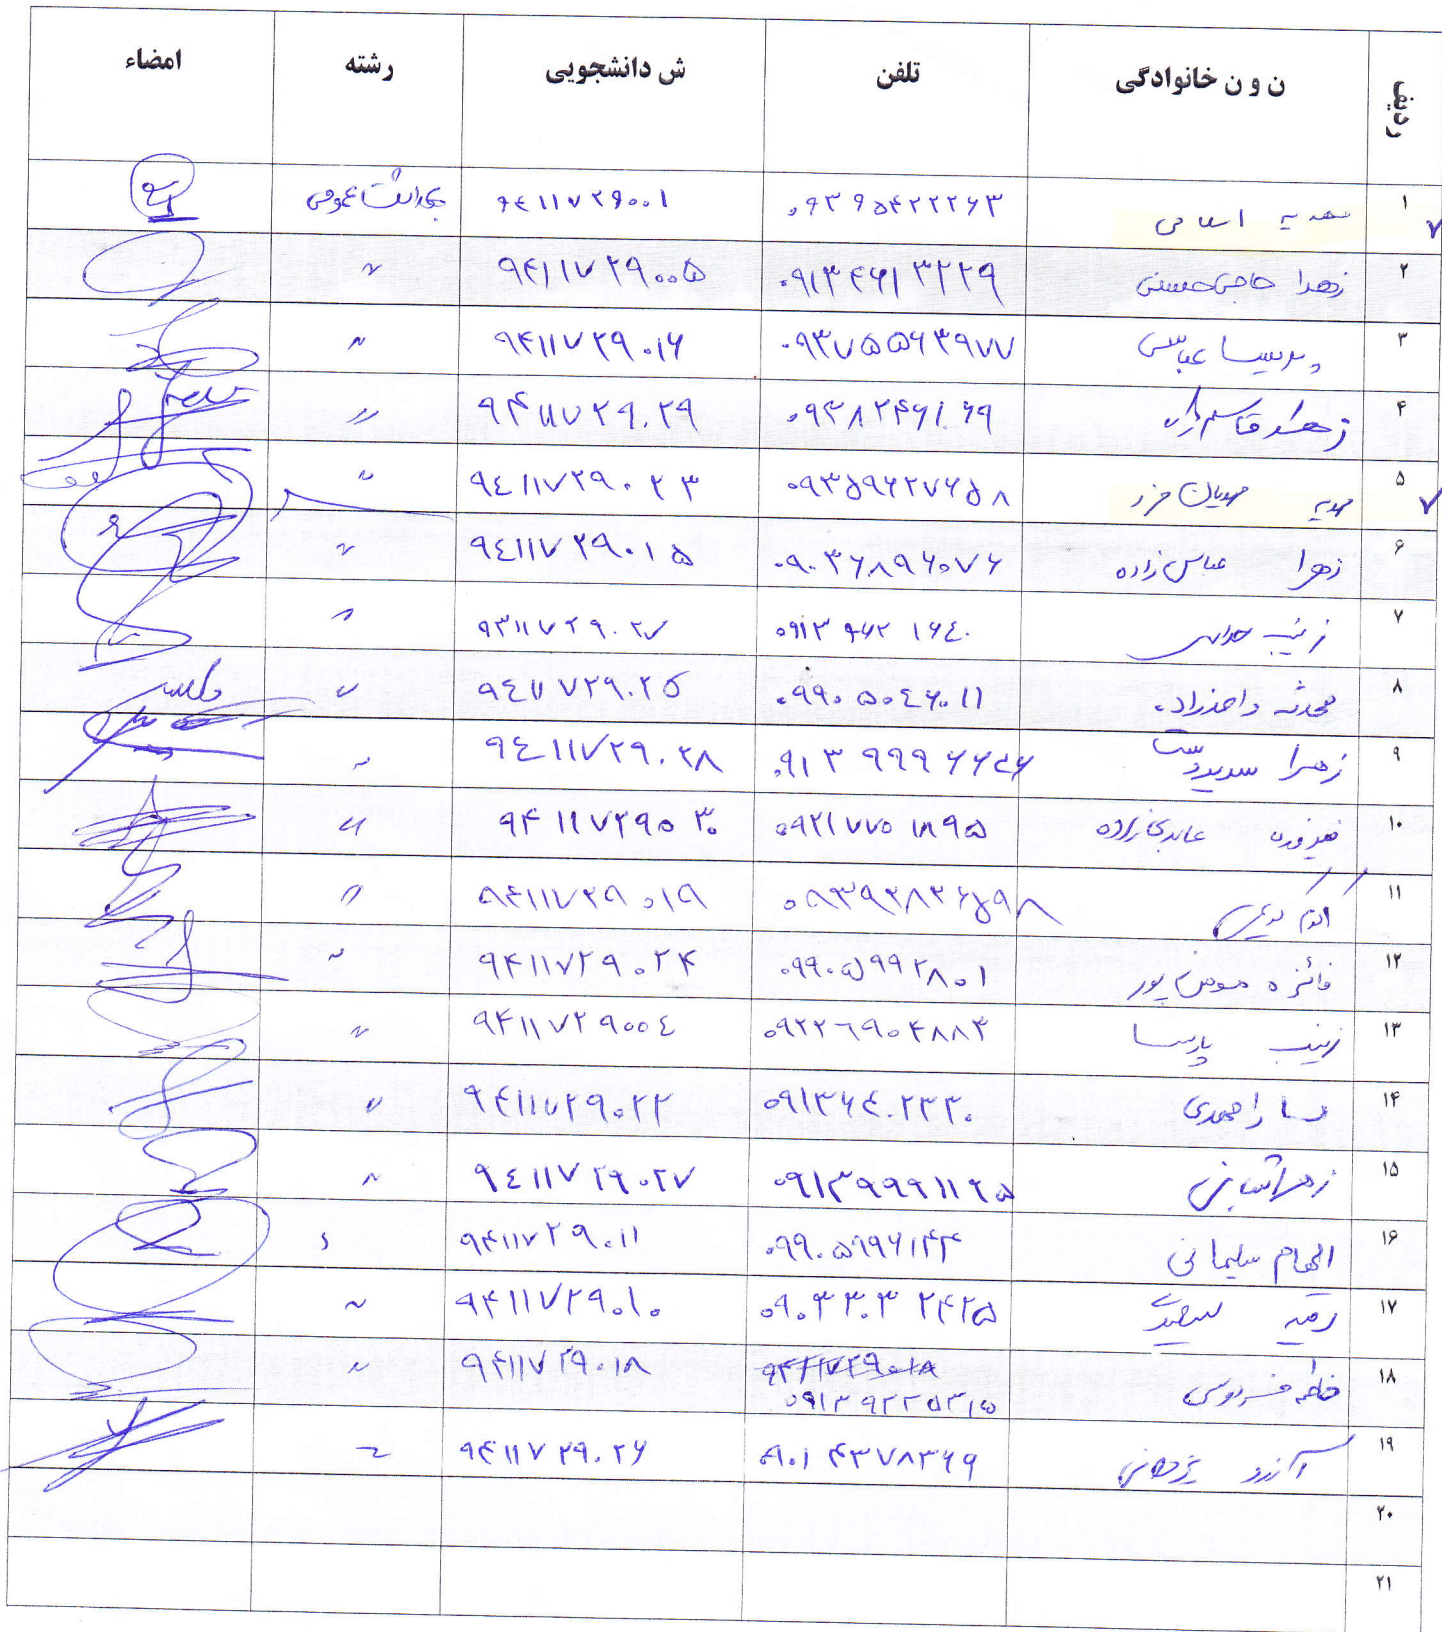 ردیف ن و ن خانوادگی تلفن ش دانشجویی رشته امضاء
۱ اسلامی ۰۹۳۹۵۴۲۲۲۶۳ ۹۴۱۱۷۲۹۰۰۱ بهداشت عمومی
۲ زهرا حاجی حسنی ۰۹۱۳۴۶۱۳۲۲۹ ۹۴۱۱۷۲۹۰۰۵ "
۳ پریسا عباسی ۰۹۳۷۵۵۶۳۹۷۷ ۹۴۱۱۷۲۹۰۱۶ "
۴ ۰۹۳۸۲۴۶۱۰۶۹ ۹۴۱۱۷۲۹۰۲۹ "
۵ ۰۹۳۵۹۶۲۷۶۵۸ ۹۴۱۱۷۲۹۰۲۳ "
۶ زهرا عباس زاده ۰۹۰۳۶۸۹۶۰۷۶ ۹۴۱۱۷۲۹۰۱۵ "
۷ زینب ۰۹۱۳۹۶۲۱۶۴۰ ۹۳۱۱۷۲۹۰۲۷ "
۸ محدثه ۰۹۹۰۵۰۴۶۰۱۱ ۹۴۱۱۷۲۹۰۲۵ "
۹ زهرا ۰۹۱۳۹۹۹۶۶۴۶ ۹۴۱۱۷۲۹۰۲۸ "
۱۰ ۰۹۲۱۷۷۵۱۸۹۵ ۹۴۱۱۷۲۹۰۳۰ "
۱۱ ۰۹۳۹۲۸۲۶۵۹۸ ۹۴۱۱۷۲۹۰۱۹ "
۱۲ فائزه مومن پور ۰۹۹۰۵۹۹۲۸۰۱ ۹۴۱۱۷۲۹۰۲۴ "
۱۳ زینب پارسا ۰۹۲۲۶۹۰۴۸۸۳ ۹۴۱۱۷۲۹۰۰۴ "
۱۴ سارا احمدی ۰۹۱۳۶۴۰۲۲۳۰ ۹۴۱۱۷۲۹۰۲۲ "
۱۵ ۰۹۱۳۹۹۹۱۱۲۵ ۹۴۱۱۷۲۹۰۲۷ "
۱۶ الهام سلیمانی ۰۹۹۰۵۹۹۶۱۴۴ ۹۴۱۱۷۲۹۰۱۱
۱۷ رقیه ۰۹۰۳۳۰۳۲۴۲۵ ۹۴۱۱۷۲۹۰۱۰ "
۱۸ فاطمه فردوسی ۹۴۱۱۷۲۹۰۱۸ ۹۴۱۱۷۲۹۰۱۸ "
۰۹۱۳۹۲۲۵۳۱۵
۱۹ ۰۹۰۱۴۳۷۸۳۶۹ ۹۴۱۱۷۲۹۰۲۶
۲۰
۲۱